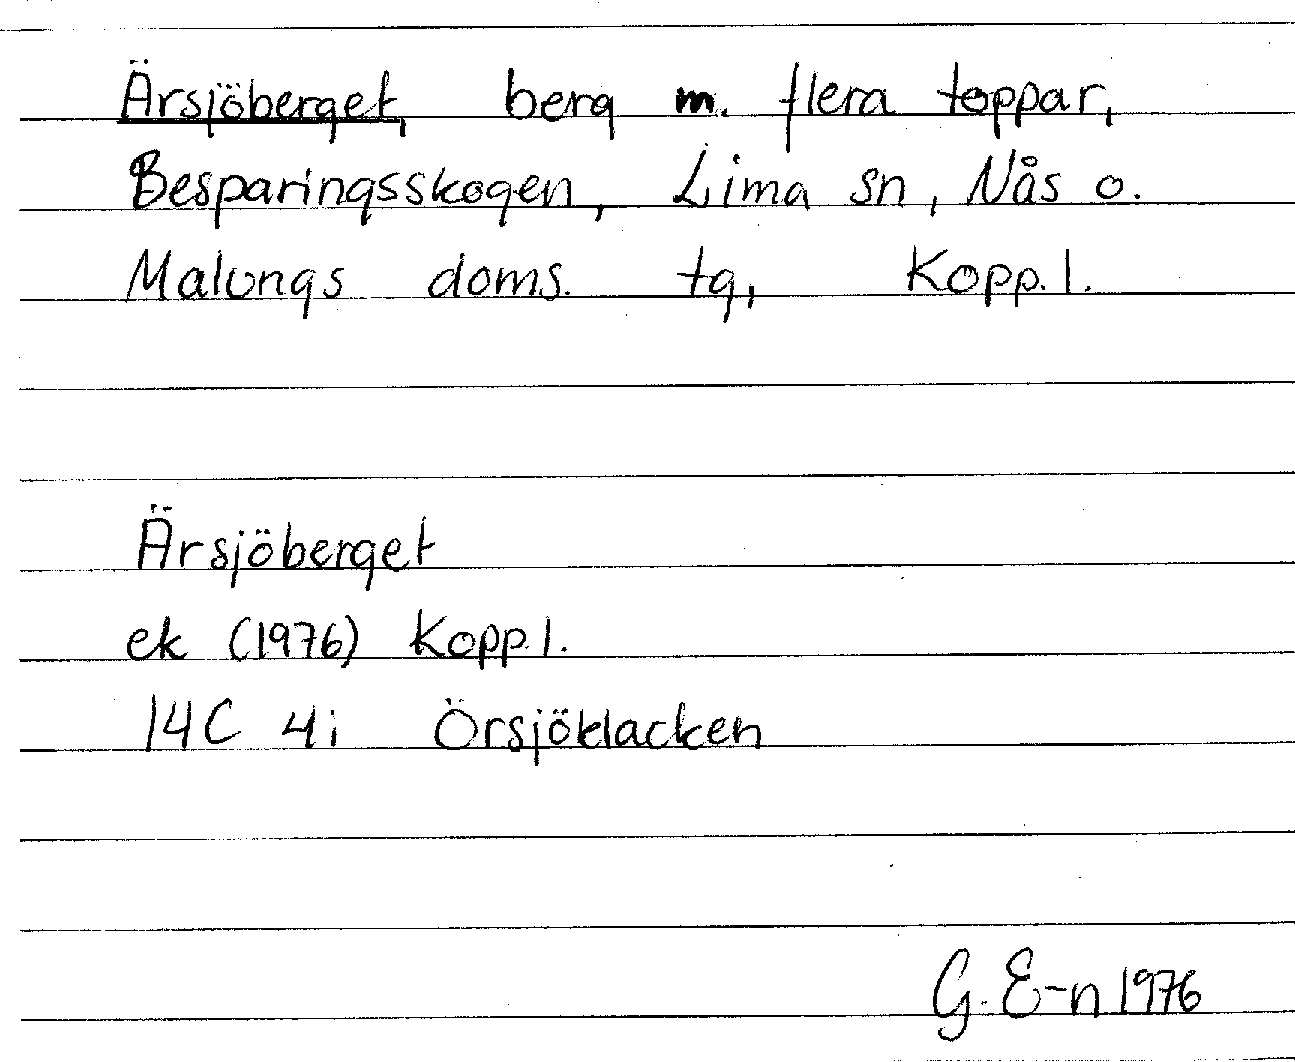 Ärsjöberget, berg m. flera toppar,
Besparingsskogen, Lima sn, Nås o.
Malungs doms. tg, Kopp. l.
Ärsjöberget
ek (1976) Kopp. l.
14C 4i Örsjöklacken
G. E-n 1976